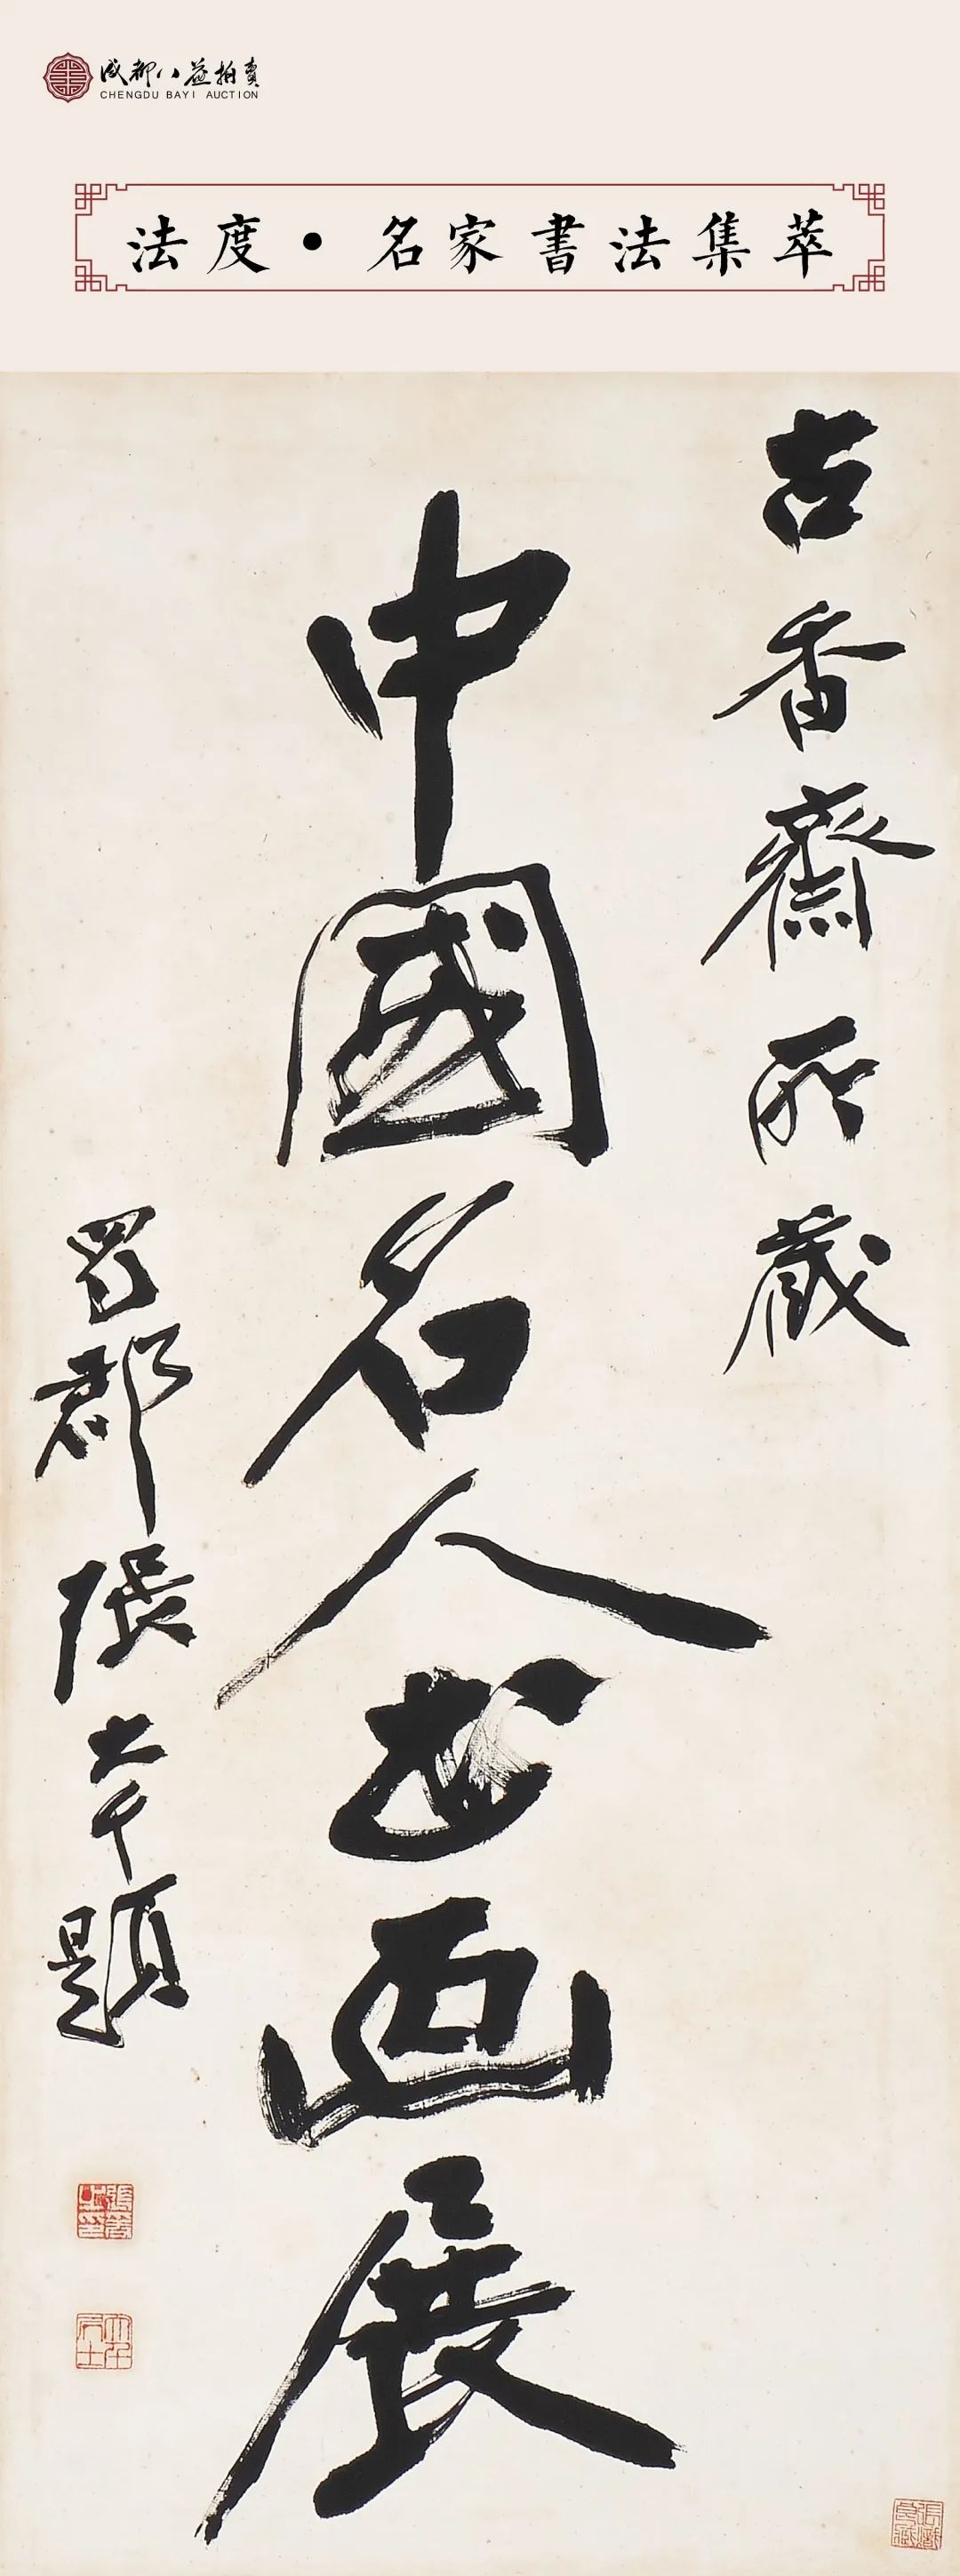 成都八益拍賣
CHENGDU BAYI AUCTION
法度·名家書法集萃
古香齋所藏
中國名人书画展
蜀郡張大千題
大千居士